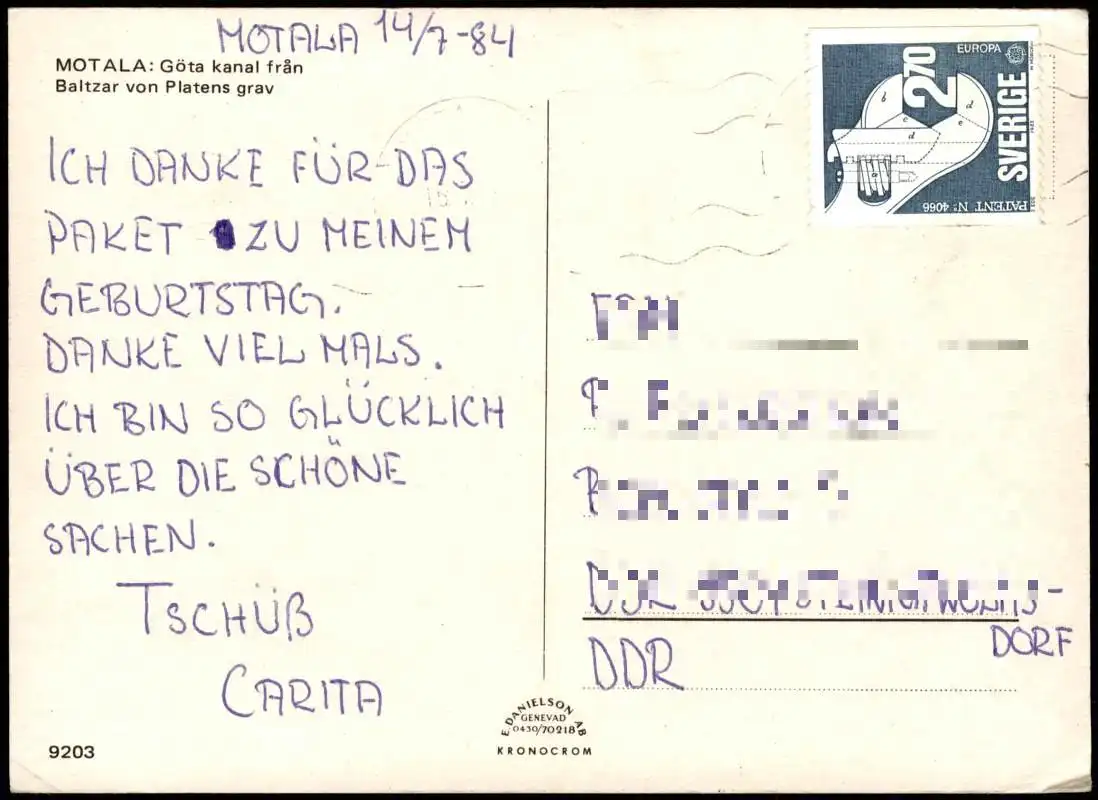 MOTALA 14/7-84
MOTALA: Göta kanal från
Baltzar von Platens grav
ICH DANKE FÜR DAS
PAKET ZU MEINEM
GEBURTSTAG.
DANKE VIEL MALS.
ICH BIN SO GLÜCKLICH
ÜBER DIE SCHÖNE
SACHEN.
TSCHÜß
CARITA
9203
E. DANIELSON AB
GENEVAD
0430/70218
KRONOCROM
EUROPA
2.70
SVERIGE
PATENT Nº 4066
b
d
c
e
d
a
DORF
DDR